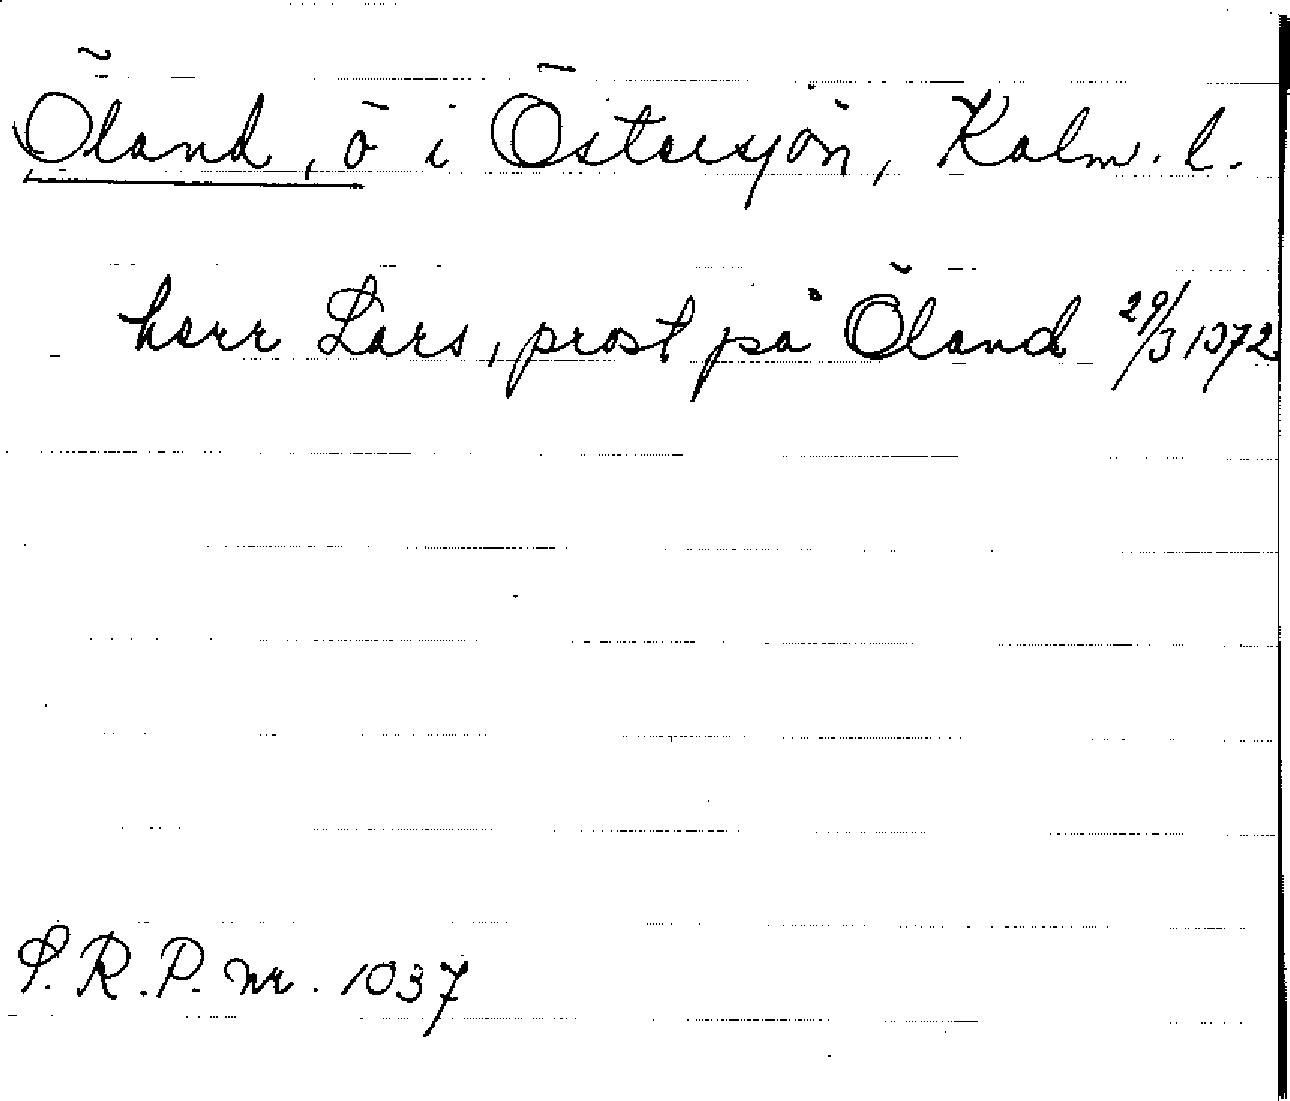 Öland, ö i Östersjön, Kalm. l.
herr Lars, prost på Öland 29/3 1372
S.R.P. nr. 1037